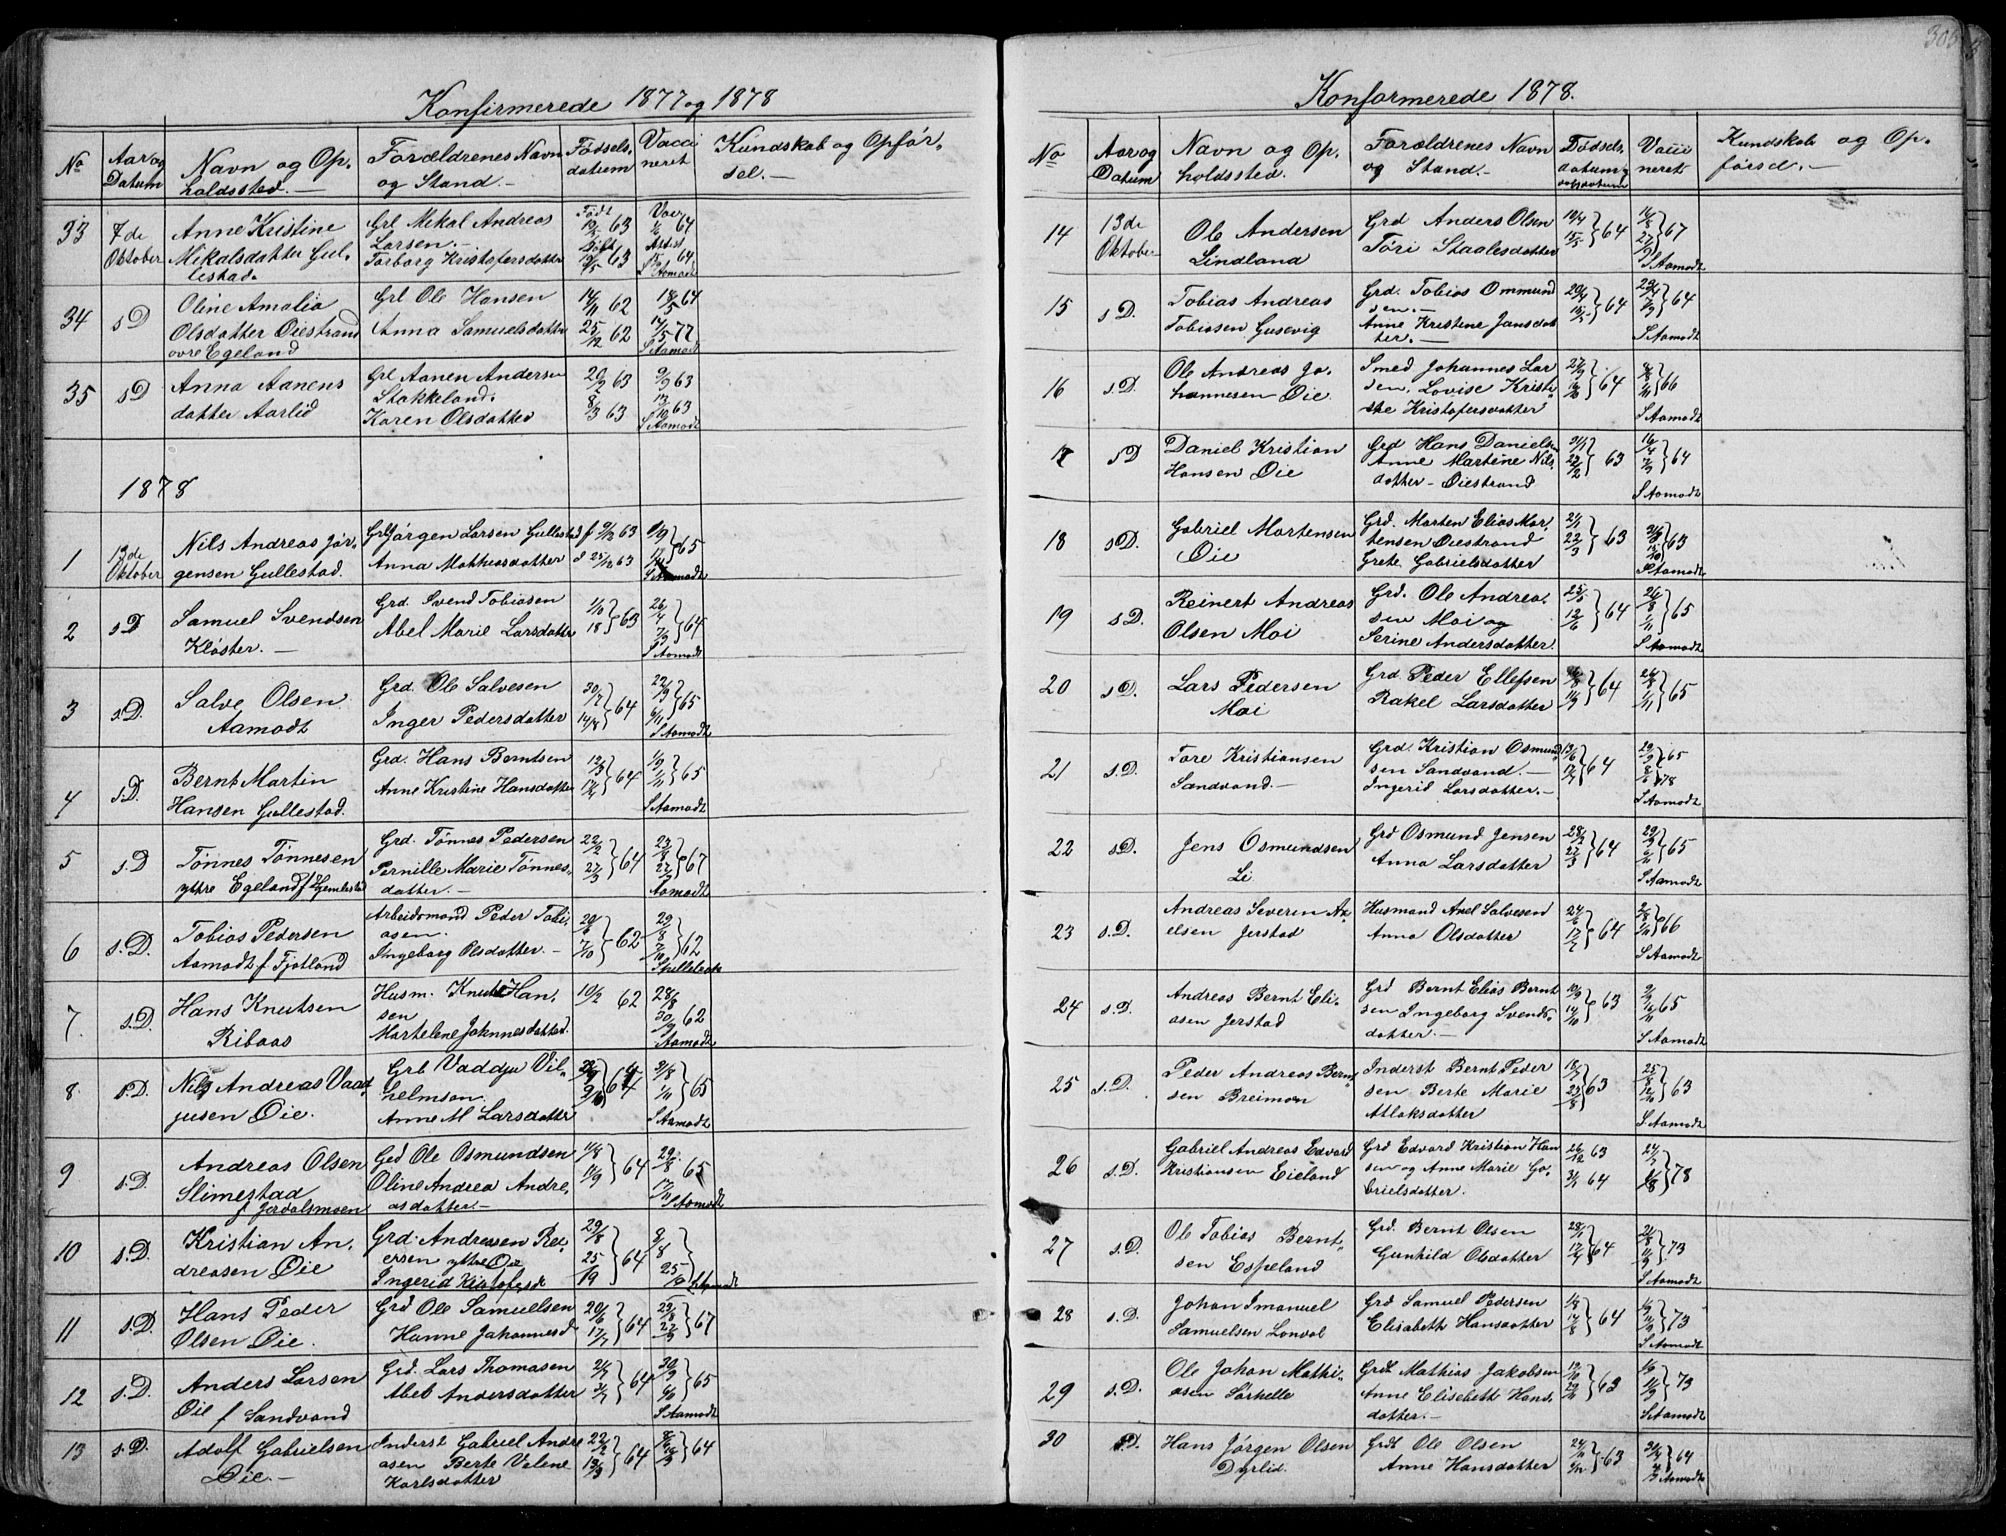 305
Konfirmerede 1877 og 1878
No
Aar og Datum
Navn og Op-
holdssted. —
Forældrenes Navn
og Stand. —
Fødsels-
datum
Vacci
neret
Kundskab og Opfør-
sel. —
33
7de
Oktober
Anne Kristine
Mikalsdatter Gul-
lestad.
Grl Mikal Andreas
Larsen. —
Torborg Kristofersdatter
Født
63
63
64
64
S Aamodt
34
s D
Oline Amalia
Olsdatter Øiestrand
øvre Egeland
Grl Ole Hansen
Anna Samuelsdatter
14/11 62
25/12 62
18/5 64
14/5 77
S Aamodt
35
s D
Anna Aanens
datter Aarlid
Grl Aanen Andersen
Stokkeland.
Karen Olsdatter
20/2 63
8/3 63
9/9 63
63
S Aamodt
1878
1
13de
Oktober
Nils Andreas Jør-
gensen Gullestad.
Grl Jørgen Larsen Gullestad
Anna Mathiasdatter
f 9/12 63
d 25/12 63
65
S Aamodt
2
s D
Samuel Svendsen
Kloster. —
Grd. Svend Tobiasen
Abel Marie Larsdatter
1/10
18
63
26/4
7/9
64
S Aamodt
3
s. D.
Salve Olsen
Aamodt
Grd. Ole Salvesen
Inger Pedersdatter
30/7
14/8
64
22/9
6/11
65
S Aamodt
4
s. D.
Bernt Martin
Hansen Gullestad.
Grd. Hans Berntsen
Anne Kristine Hansdatter
12/3
17/4
64
1/9
1/11
65
S Aamodt
5
s. D
Tønnes Tønnesen
ytre Egeland f Hjemlestad
Grd. Tønnes Pedersen
Pernille Marie Tønnes-
datter. —
22/2
27/3
64
67
Aamodt
6
s. D.
Tobias Pedersen
Aamodt f Fjotland
Arbeidsmand Peder Tobi-
asen.
Ingeborg Olsdatter. —
20/8
7/10
62
29/8
7/10
62
7.
s. D.
Hans Knutsen
Ribaas
Husm. Knut Han-
sen
Martelene Johannesdatter
10/2 62
28/8
30/9
62
S Aamodt
8
s. D.
Nils Andreas Vaad
jusen Øie.
Grb Vaddju Vil-
helmsen.
Anne M Larsdatter
64
2/8
1/11
65
S Aamodt
9
s. D.
Andreas Olsen
Slimestad
f Jerdalsmoen
Ged Ole Osmundsen
Oline Andrea Andre-
asdatter. —
11/8
11/9
64
29/8
17/11
65
S Aamodt
10
s. D.
Kristian An-
dreasen Øie
Grd. Andreasen Rei-
ersen ytre Øie
Ingerid Kristofersd.
29/8
25/19
64
3/8
25/9
S Aamodt
11
s. D.
Hans Peder
Olsen Øie.
Grd Ole Samuelsen
Hanne Johannesd
20/6
17/7
64
67
12
s. D.
Anders Larsen
Øie f Sandvand
Grd. Lars Thomasen
Abel Andersdatter
64
65
S Aamodt
13
s. D.
Adolf Gabrielsen
Øie. —
Inderst Gabriel Andre
asen Berte Velene
Karlsdatter
22/2
13/3
64
64
Konformerede 1878.
No
Aar og
Datum
Navn og Op-
holdssted.
Forældrenes Navn
og Stand. —
Fødsels-
datum og
daabsdatum
Vacci
neret
Kundskab og Op-
førsel. —
14
13de
Oktober
Ole Andersen
Lindland
Grd Anders Olsen
Tøri Staalesdatter
19/4
15/5
64
67
S Aamodt
15
s D.
Tobias Andreas
Tobiasen Gusevig
Grd. Tobias Ommund
sen. —
Anne Kristine Jansdat
ter. —
64
64
S Aamodt
16
s. D.
Ole Andreas Jo-
hannesen Øie.
Smed Johannes Lar
sen. Lovise Kristi-
ne Kristofersdatter
64
66
S Aamodt
17
s D
Daniel Kristian
Hansen Øie
Grd Hans Daniels
Anne Martine Nils
datter - Øiestrand
63
16/4
7/9
64
S Aamodt
18
s D.
Gabriel Mortensen
Øie
Grd. Morten Elias Mor-
tensen Øiestrand
Grete Gabrielsdatter
2/1
22/3
63
63
S Aamodt
19
s D.
Reinert Andreas
Olsen Moi
Grd. Ole Andrea-
sen Moi og
Serine Andersdatter.
23/5
12/6
64
26/8
1/11
65
S Aamodt
20
s D.
Lars Pedersen
Moi
Grd Peder Ellefsen
Rakel Larsdatter
64
26/8
1/11
65
S Aamodt
21
s. D.
Tore Kristiansen
Sandvand. —
Grd. Kristian Osmund-
sen Sandvand. —
Ingerid Larsdatter. —
13/6
17/7
64
65
78
S Aamodt
22
s D.
Jens Osmundsen
Li
Grd Osmund Jensen
Anna Larsdatter
28/2
27/3
64
29/9
6/11
65
S Aamodt
23
s. D.
Andreas Severin Ax
elsen Jerstad
Husmand Axel Salvesen
Anna Olsdatter
24/6
17/7
64
66
S Aamodt
24
s. D.
Andreas Bernt Eli-
asen Jerstad
Grd Bernt Elias Bernt
sen Ingeborg Svends-
datter. —
19/9
14/10
63
65
S Aamodt
25
s. D.
Peder Andreas Bernt
sen Breimon
Inderst Bernt Peder
sen Berte Marie
Atlaksdatter
18/7
23/8
63
63
S Aamodt
26
s. D.
Gabriel Andreas Edvard
Kristiansen Eieland
Grd Edvard Kristian Han
sen og Anne Marie Ga-
brielsdatter.
26/12 63
3/1 64
78
27
s. D.
Ole Tobias Bernt-
sen Espeland
Grd. Bernt Olsen
Gunhild Olsdatter
28/1
17/4
64
73
S Aamodt
28
s. D.
Johan Imanuel
Samuelsen Lonvol
Grd Samuel Pedersen
Elisabeth Hansdatter
1/8
14/8
64
73
S Aamodt
29
s. D.
Ole Johan Mathi-
asen Sørhelle
Grdt Mathias Jakobsen
Anne Elisebeth Hans-
datter. —
63
73
S Aamodt
30
s D.
Hans Jørgen Olsen
Dyrlid.
Grdt Ole Olsen
Anne Hansdatter
63
64
S Aamodt